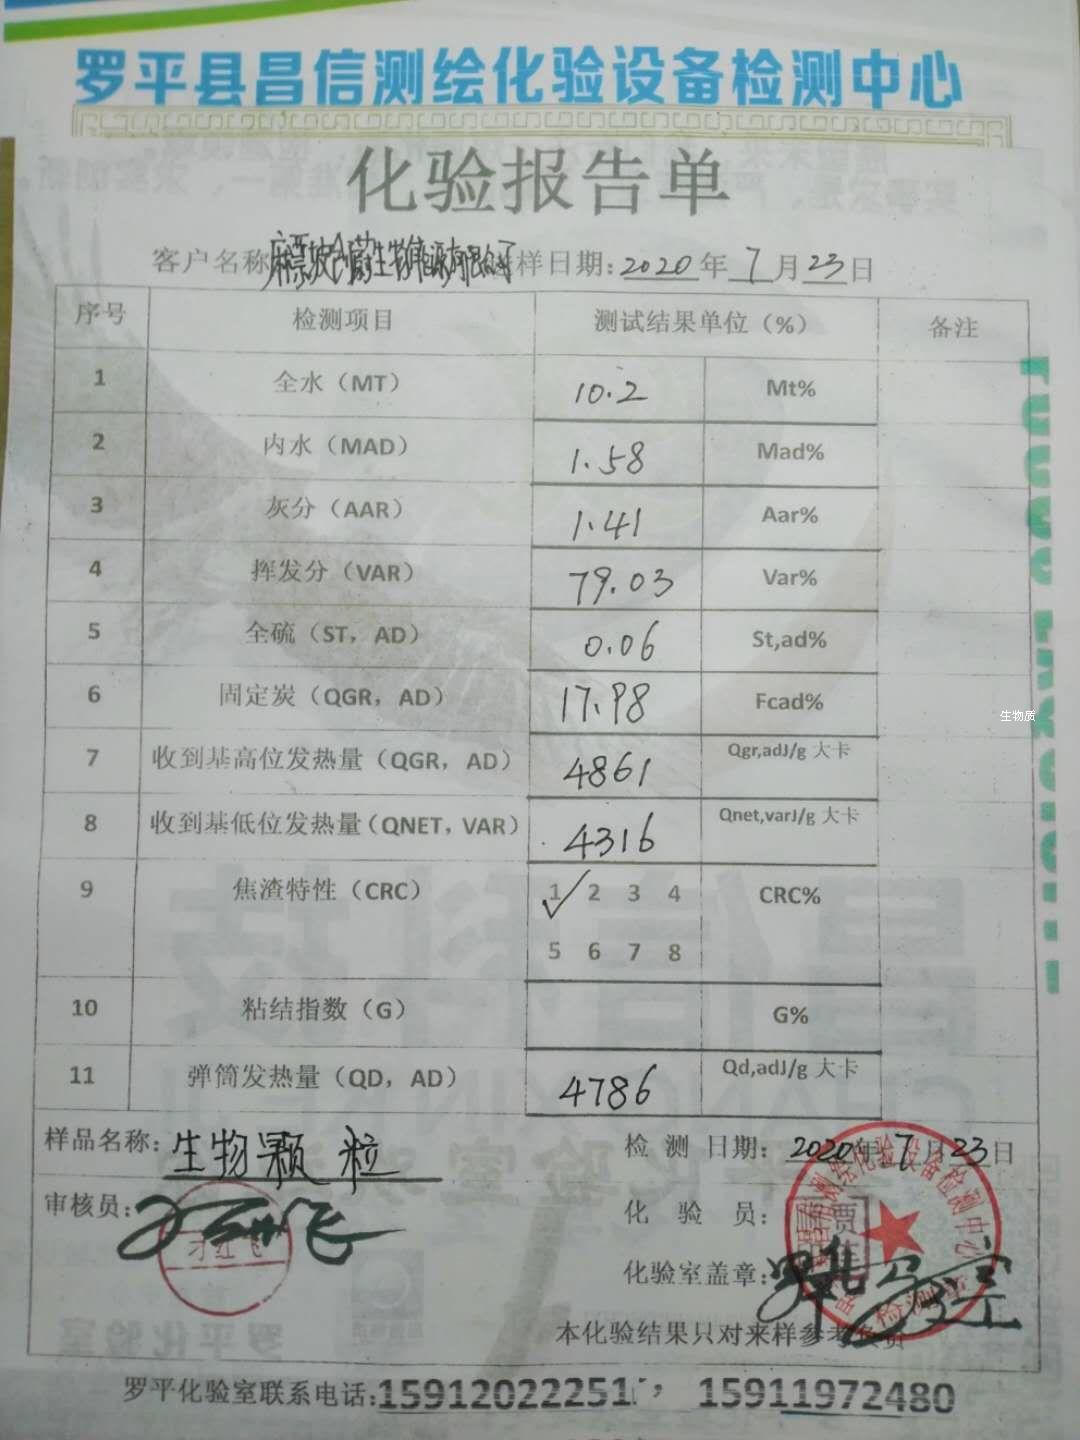 罗平县昌信测绘化验设备检测中心
化验报告单
客户名称 样日期: 2020 年 7 月 23 日
序号 检测项目 测试结果单位（%） 备注
1 全水（MT） 10.2 Mt%
2 内水（MAD） 1.58 Mad%
3 灰分（AAR） 1.41 Aar%
4 挥发分（VAR） 79.03 Var%
5 全硫（ST，AD） 0.06 St,ad%
6 固定炭（QGR，AD） 17.98 Fcad%
7 收到基高位发热量（QGR，AD） 4861 Qgr,adJ/g 大卡
8 收到基低位发热量（QNET，VAR） 4316 Qnet,varJ/g 大卡
9 焦渣特性（CRC） 1 2 3 4 CRC%
5 6 7 8
10 粘结指数（G） G%
11 弹筒发热量（QD，AD） 4786 Qd,adJ/g 大卡
生物质
样品名称: 生物颗粒 检测日期: 2020 年 7 月 23 日
审核员: 化验员:
化验室盖章:
本化验结果只对来样参考负责
罗平化验室联系电话:15912022251， 15911972480